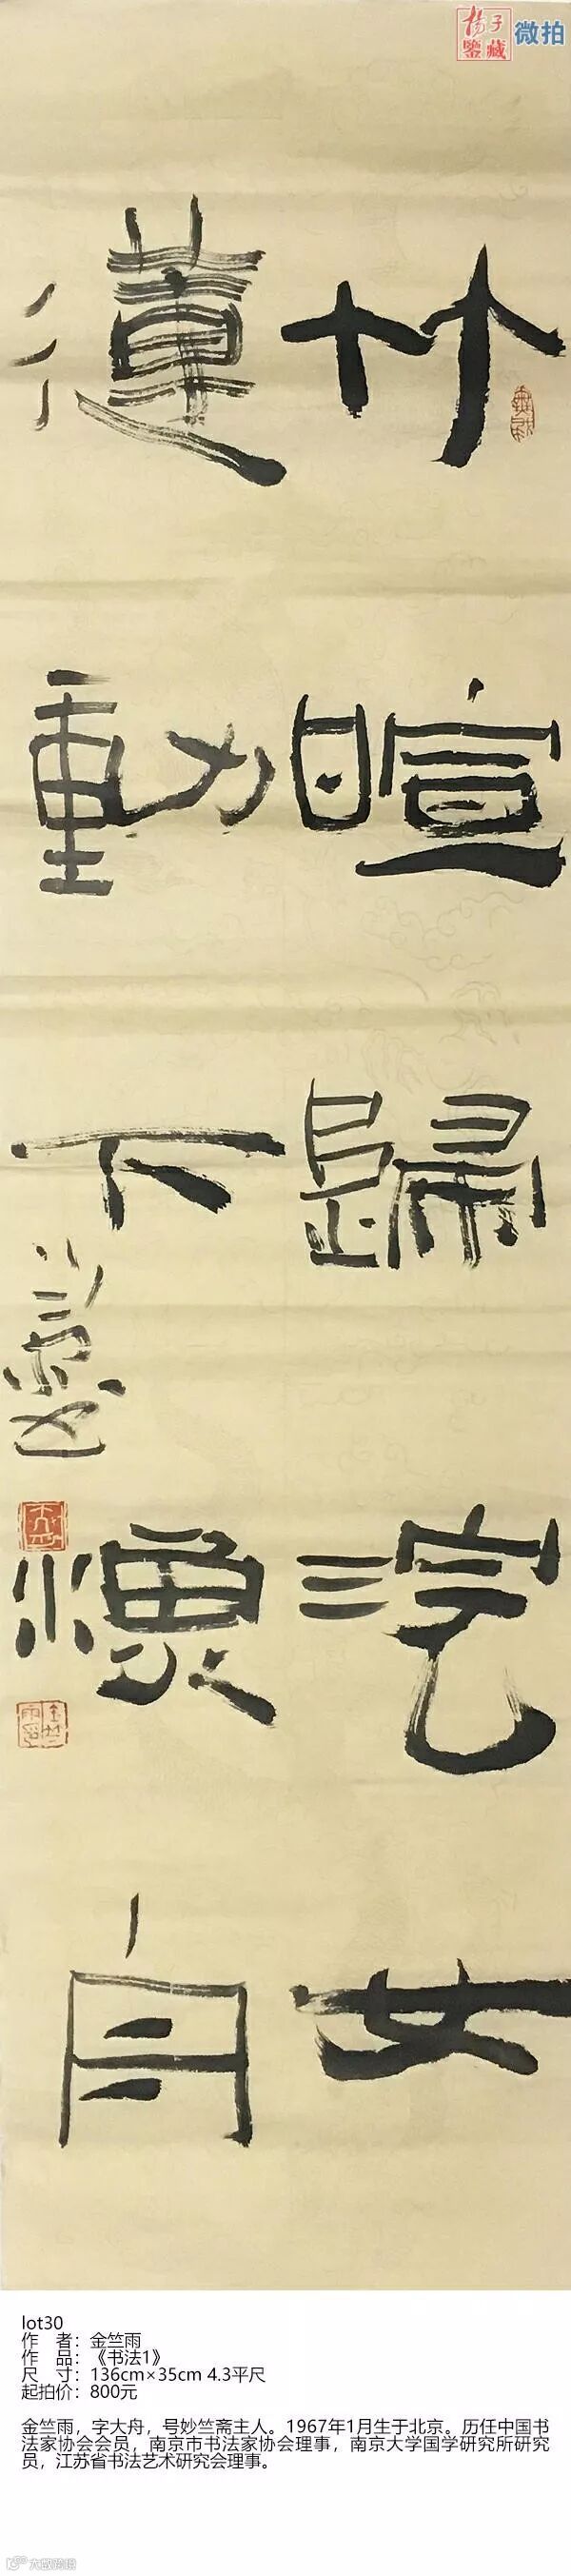 揚子
鑒藏
微拍
竹喧歸浣女
蓮動下漁舟
金竺雨印
lot30
作　者：金竺雨
作　品：《书法1》
尺　寸：136cm×35cm 4.3平尺
起拍价：800元
金竺雨，字大舟，号妙竺斋主人。1967年1月生于北京。历任中国书
法家协会会员，南京市书法家协会理事，南京大学国学研究所研究
员，江苏省书法艺术研究会理事。